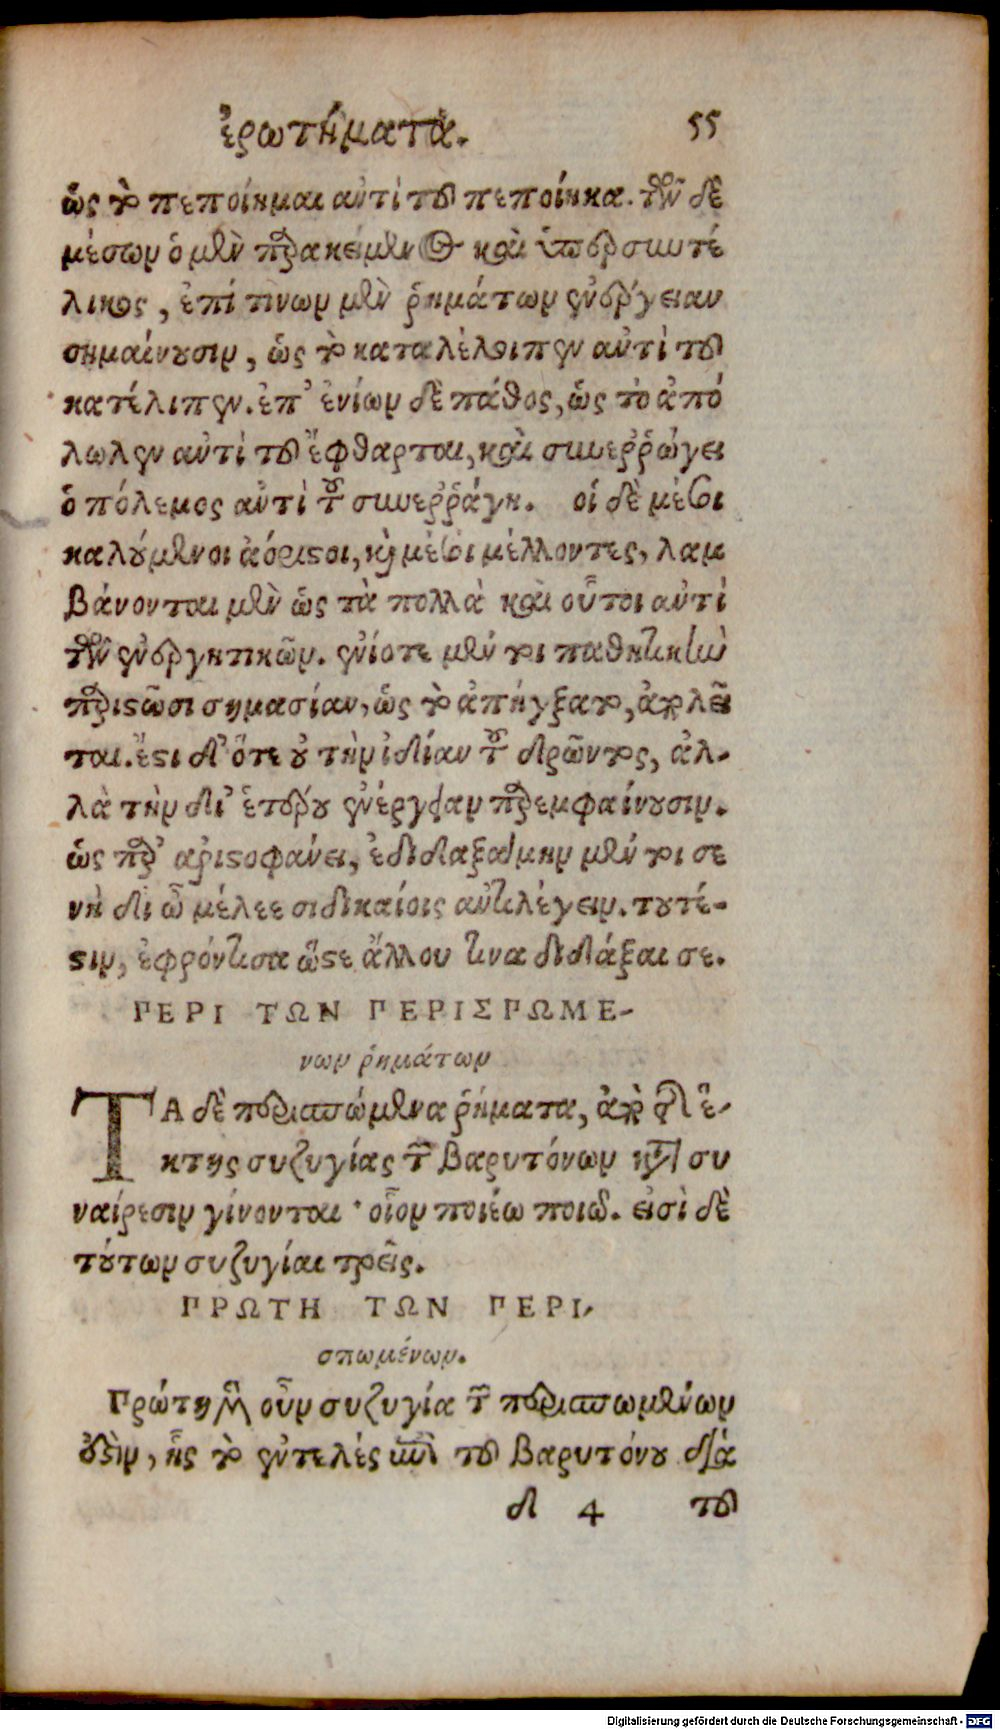 ἐρωτήματα. 55
ὡς τὸ πεποίημαι ἀντὶ τοῦ πεποίηκα. τῶν δὲ
μέσων ὁ μὲν παρακείμενος καὶ ὑπερσυντέ
λικος, ἐπί τινων μὲν ῥημάτων ἐνέργειαν
σημαίνουσιν, ὡς τὸ καταλέλοιπεν ἀντὶ τοῦ
κατέλιπεν. ἐπ' ἐνίων δὲ πάθος, ὡς τὸ ἀπό
λωλεν ἀντὶ τοῦ ἔφθαρται, καὶ συνερῤῥώγει
ὁ πόλεμος ἀντὶ τοῦ συνερῤῥάγη. οἱ δὲ μέσοι
καλούμενοι ἀόριστοι, καὶ μέσοι μέλλοντες, λαμ
βάνονται μὲν ὡς τὰ πολλὰ καὶ οὗτοι ἀντὶ
τῶν ἐνεργητικῶν. ἐνίοτε μέν τοι παθητικὴν
παριστῶσι σημασίαν, ὡς τὸ ἀπήγξατο, ἀπολεῖ
ται. ἔστι δ' ὅτε οὐ τὴν ἰδίαν τοῦ δρῶντος, ἀλ-
λὰ τὴν δι' ἑτέρου ἐνέργειαν παρεμφαίνουσιν.
ὡς παρ' ἀριστοφάνει, ἐδιδαξάμην μέν τοι σε
νὴ δι ὦ μέλεε σι δικαίοις ἀντιλέγειν. τουτέ-
στιν, ἐφρόντισα ὥστε ἄλλου τινα διδάξαι σε.
ΠΕΡΙ ΤΩΝ ΠΕΡΙΣΠΩΜΕ-
νων ῥημάτων
ΤΑ δὲ περισπώμενα ῥήματα, ἀπὸ τῆς ἕ-
κτης συζυγίας τῶν βαρυτόνων κατὰ συ
ναίρεσιν γίνονται · οἷον ποιέω ποιῶ. εἰσὶ δὲ
τούτων συζυγίαι τρεῖς.
ΠΡΩΤΗ ΤΩΝ ΠΕΡΙ-
σπωμένων.
Πρώτη μὲν οὖν συζυγία τῶν περισπωμένων
ἐστὶν, ἧς τὸ ἐντελὲς ἐπὶ τοῦ βαρυτόνου διὰ
δ 4 τοῦ
Digitalisierung gefördert durch die Deutsche Forschungsgemeinschaft - DFG